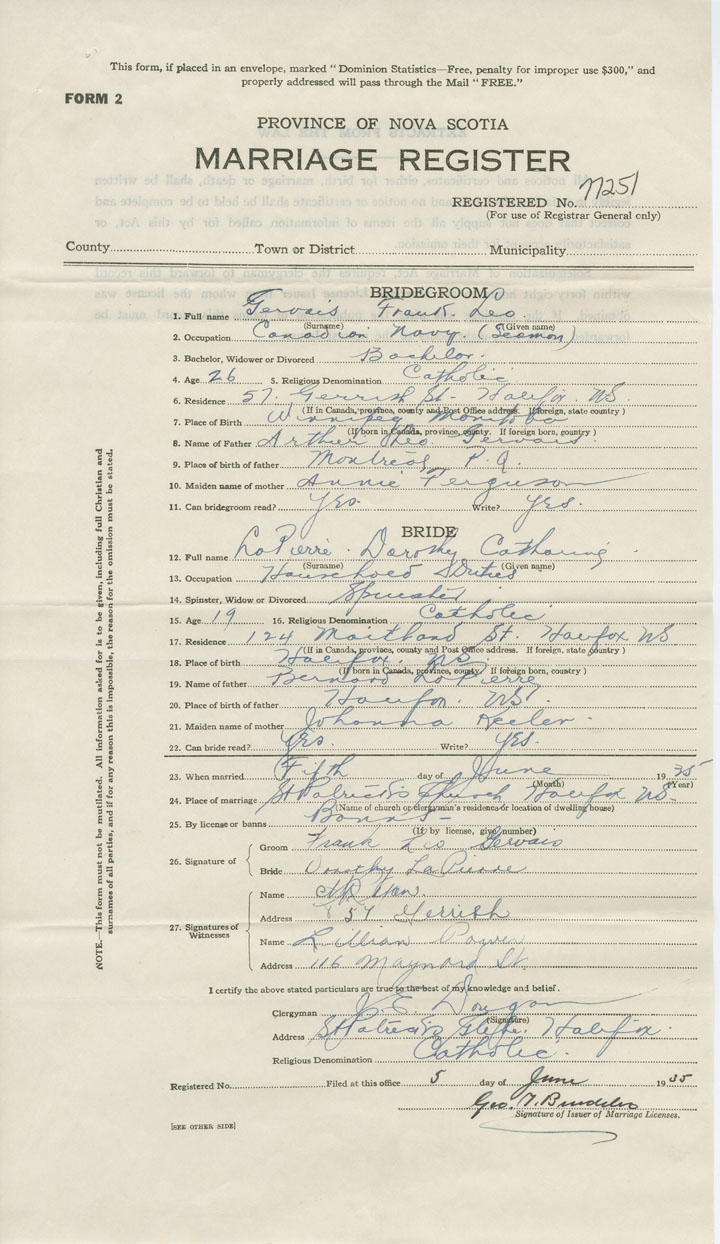 This form, if placed in an envelope, marked "Dominion Statistics—Free, penalty for improper use $300," and
properly addressed will pass through the Mail "FREE."
FORM 2
PROVINCE OF NOVA SCOTIA
MARRIAGE REGISTER
REGISTERED No. 77251
(For use of Registrar General only)
County Town or District Municipality
BRIDEGROOM
1. Full name Gervais Frank Leo
(Surname) (Given name)
2. Occupation Canadian Navy. (Seaman)
3. Bachelor, Widower or Divorced Bachelor.
4. Age 26 5. Religious Denomination Catholic
6. Residence 57 Gerrish St. Halifax. NS
(If in Canada, province, county and Post Office address. If foreign, state country )
7. Place of Birth Winnipeg Manitoba
(If born in Canada, province, county. If foreign born, country )
8. Name of Father Arthur Leo Gervais
9. Place of birth of father Montreal, P.Q.
10. Maiden name of mother Annie Ferguson
11. Can bridegroom read? Yes. Write? Yes.
BRIDE
12. Full name LaPierre. Dorothy Catharine
(Surname) (Given name)
13. Occupation Household Duties
14. Spinster, Widow or Divorced Spinster
15. Age 19 16. Religious Denomination Catholic
17. Residence 124 Maitland St. Halifax NS
(If in Canada, province, county and Post Office address. If foreign, state country )
18. Place of birth Halifax. NS
(If born in Canada, province, county. If foreign born, country )
19. Name of father Bernard LaPierre
20. Place of birth of father Halifax. NS.
21. Maiden name of mother Johanna Keeler.
22. Can bride read? Yes. Write? Yes.
23. When married Fifth day of June 1935
(Month) (Year)
24. Place of marriage St Patrick's Church Halifax NS.
(Name of church or clergyman's residence or location of dwelling house)
25. By license or banns Banns
(If by license, give number)
26. Signature of
Groom Frank Leo Gervais
Bride Dorothy LaPierre
27. Signatures of Witnesses
Name
Address 57 Gerrish
Name Lillian Power
Address 116 Maynard St.
I certify the above stated particulars are true to the best of my knowledge and belief.
Clergyman Dougan
(Signature)
Address St Patrick's Glebe. Halifax.
Religious Denomination Catholic.
Registered No. Filed at this office 5 day of June 1935
Geo.
Signature of Issuer of Marriage Licenses.
[SEE OTHER SIDE]
NOTE.—This form must not be mutilated. All information asked for is to be given, including full Christian and
surnames of all parties, and if for any reason this is impossible, the reason for the omission must be stated.